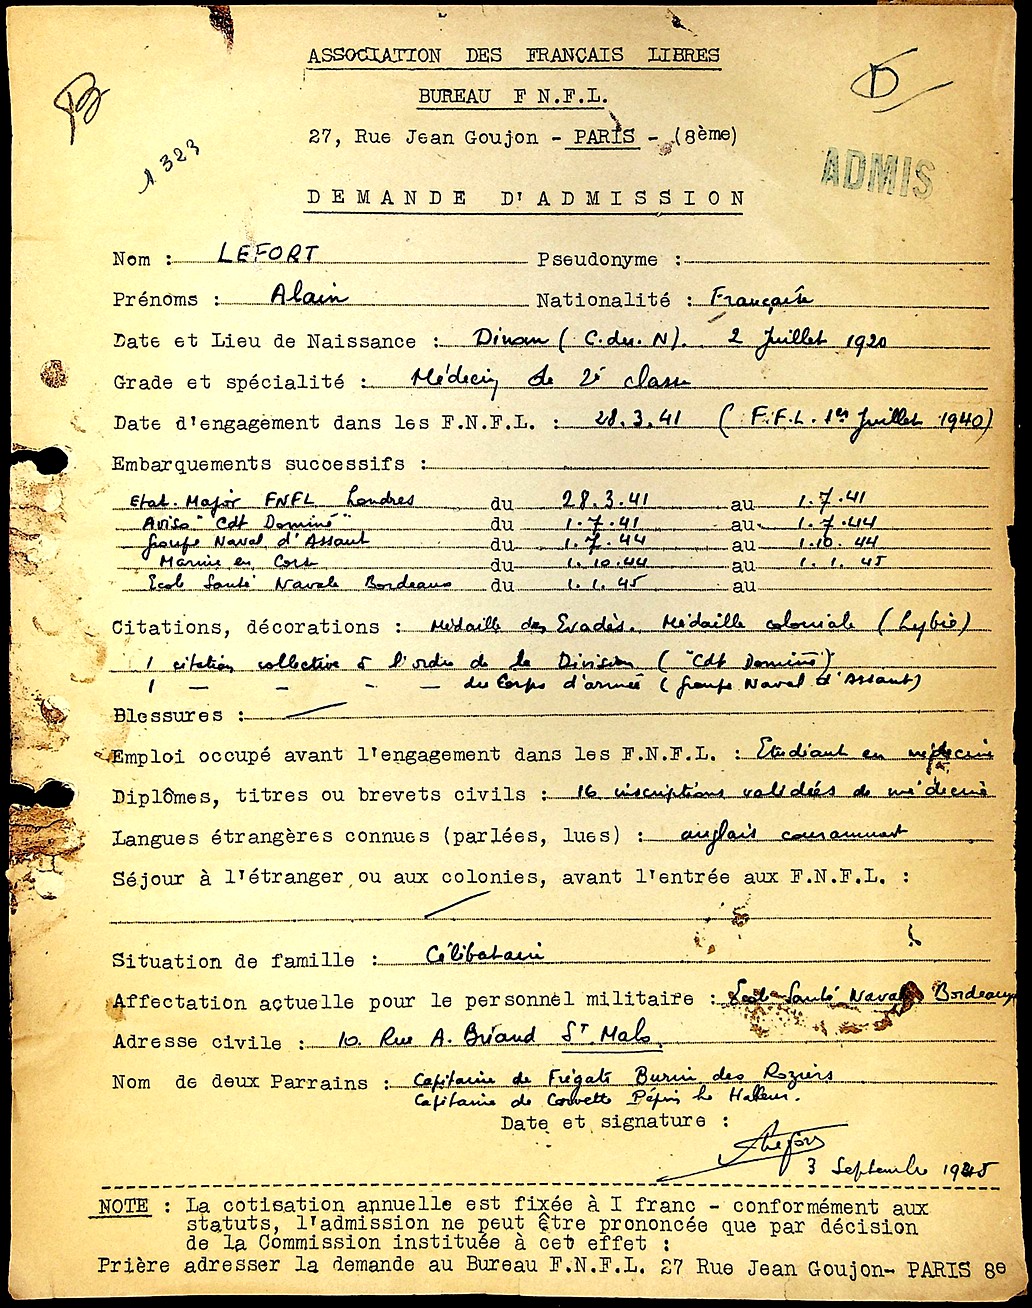 ASSOCIATION DES FRANÇAIS LIBRES
BUREAU F N.F.L.
27, Rue Jean Goujon - PARIS - (8ème)
B
D
1 323
ADMIS
DEMANDE D'ADMISSION
Nom : LEFORT Pseudonyme :
Prénoms : Alain Nationalité : Française
Date et Lieu de Naissance : Dinan ( C. du. N). 2 Juillet 1920
Grade et spécialité : Médecin de 2è classe
Date d'engagement dans les F.N.F.L. : 28.3.41 ( F.F.L. 1er Juillet 1940)
Embarquements successifs :
Etat. Major FNFL Londres du 28.3.41 au 1.7.41
Aviso "Cdt Dominé" du 1.7.41 au 1.7.44
Groupe Naval d'Assaut du 1.7.44 au 1.10.44
Marine en Corse du 1.10.44 au 1.1.45
Ecole Santé Navale Bordeaux du 1.1.45 au
Citations, décorations : Médaille des Evadés. Médaille coloniale (Lybie)
1 citation collective à l'ordre de la Division ( "Cdt Dominé")
1 — - - — du Corps d'armée ( Groupe Naval d'Assaut)
Blessures :
Emploi occupé avant l'engagement dans les F.N.F.L. : Etudiant en médecine
Diplômes, titres ou brevets civils : 16 inscriptions validées de médecine
Langues étrangères connues (parlées, lues) : anglais couramment
Séjour à l'étranger ou aux colonies, avant l'entrée aux F.N.F.L. :
Situation de famille : Célibataire
Affectation actuelle pour le personnel militaire : Ecole Santé Navale Bordeaux
Adresse civile : 10. Rue A. Briand St Malo.
Nom de deux Parrains : Capitaine de Frégate Burin des Roziers
Capitaine de Corvette Pépin le Halleur.
Date et signature :
Lefort
3 Septembre 1945
NOTE : La cotisation annuelle est fixée à I franc - conformément aux
statuts, l'admission ne peut être prononcée que par décision
de la Commission instituée à cet effet :
Prière adresser la demande au Bureau F.N.F.L. 27 Rue Jean Goujon- PARIS 8e